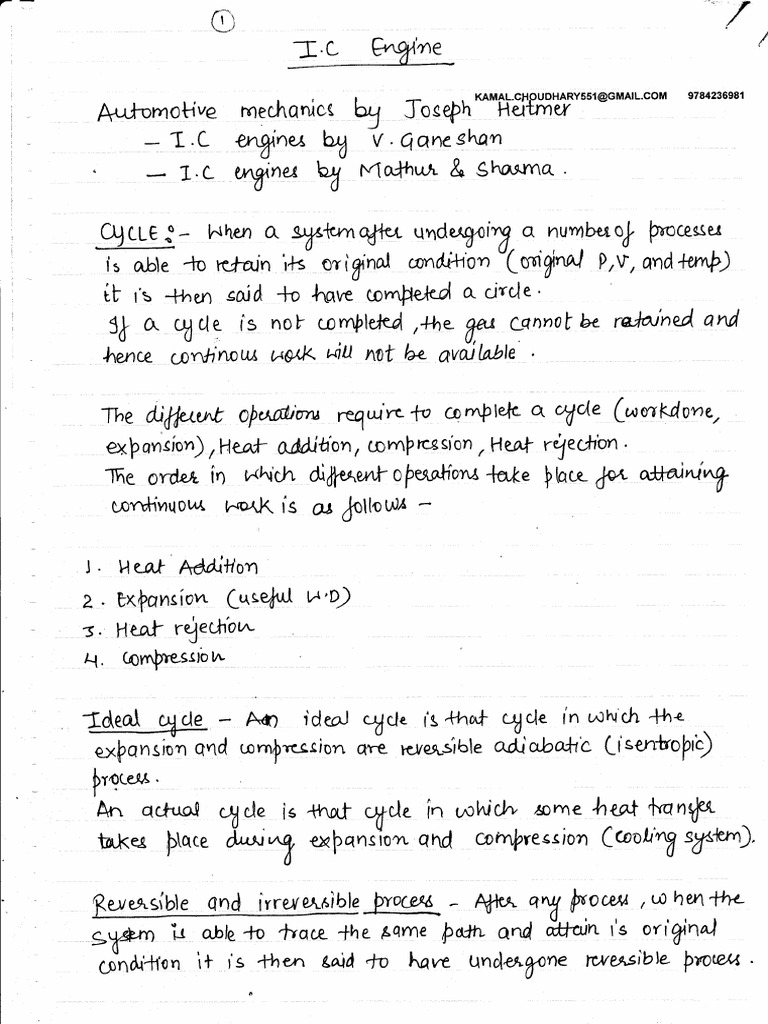 1
I.C Engine
KAMAL.CHOUDHARY551@GMAIL.COM 9784236981
Automotive mechanics by Joseph Heitmer
– I.C engines by V. Ganeshan
– I.C engines by Mathur & Sharma.
CYCLE:- When a system after undergoing a number of processes
is able to retain its original condition (original P,V, and temp)
it is then said to have completed a circle.
If a cycle is not completed, the gas cannot be retained and
hence continous work will not be available.
The different operations require to complete a cycle (workdone,
expansion), Heat addition, compression, Heat rejection.
The order in which different operations take place for attaining
continuous work is as follows –
1. Heat Addition
2. Expansion (useful W.D)
3. Heat rejection
4. Compression
Ideal cycle – An ideal cycle is that cycle in which the
expansion and compression are reversible adiabatic (isentropic)
process.
An actual cycle is that cycle in which some heat transfer
takes place during expansion and compression (cooling system).
Reversible and irreversible process – After any process, when the
system is able to trace the same path and attain i's original
condition it is then said to have undergone reversible process.